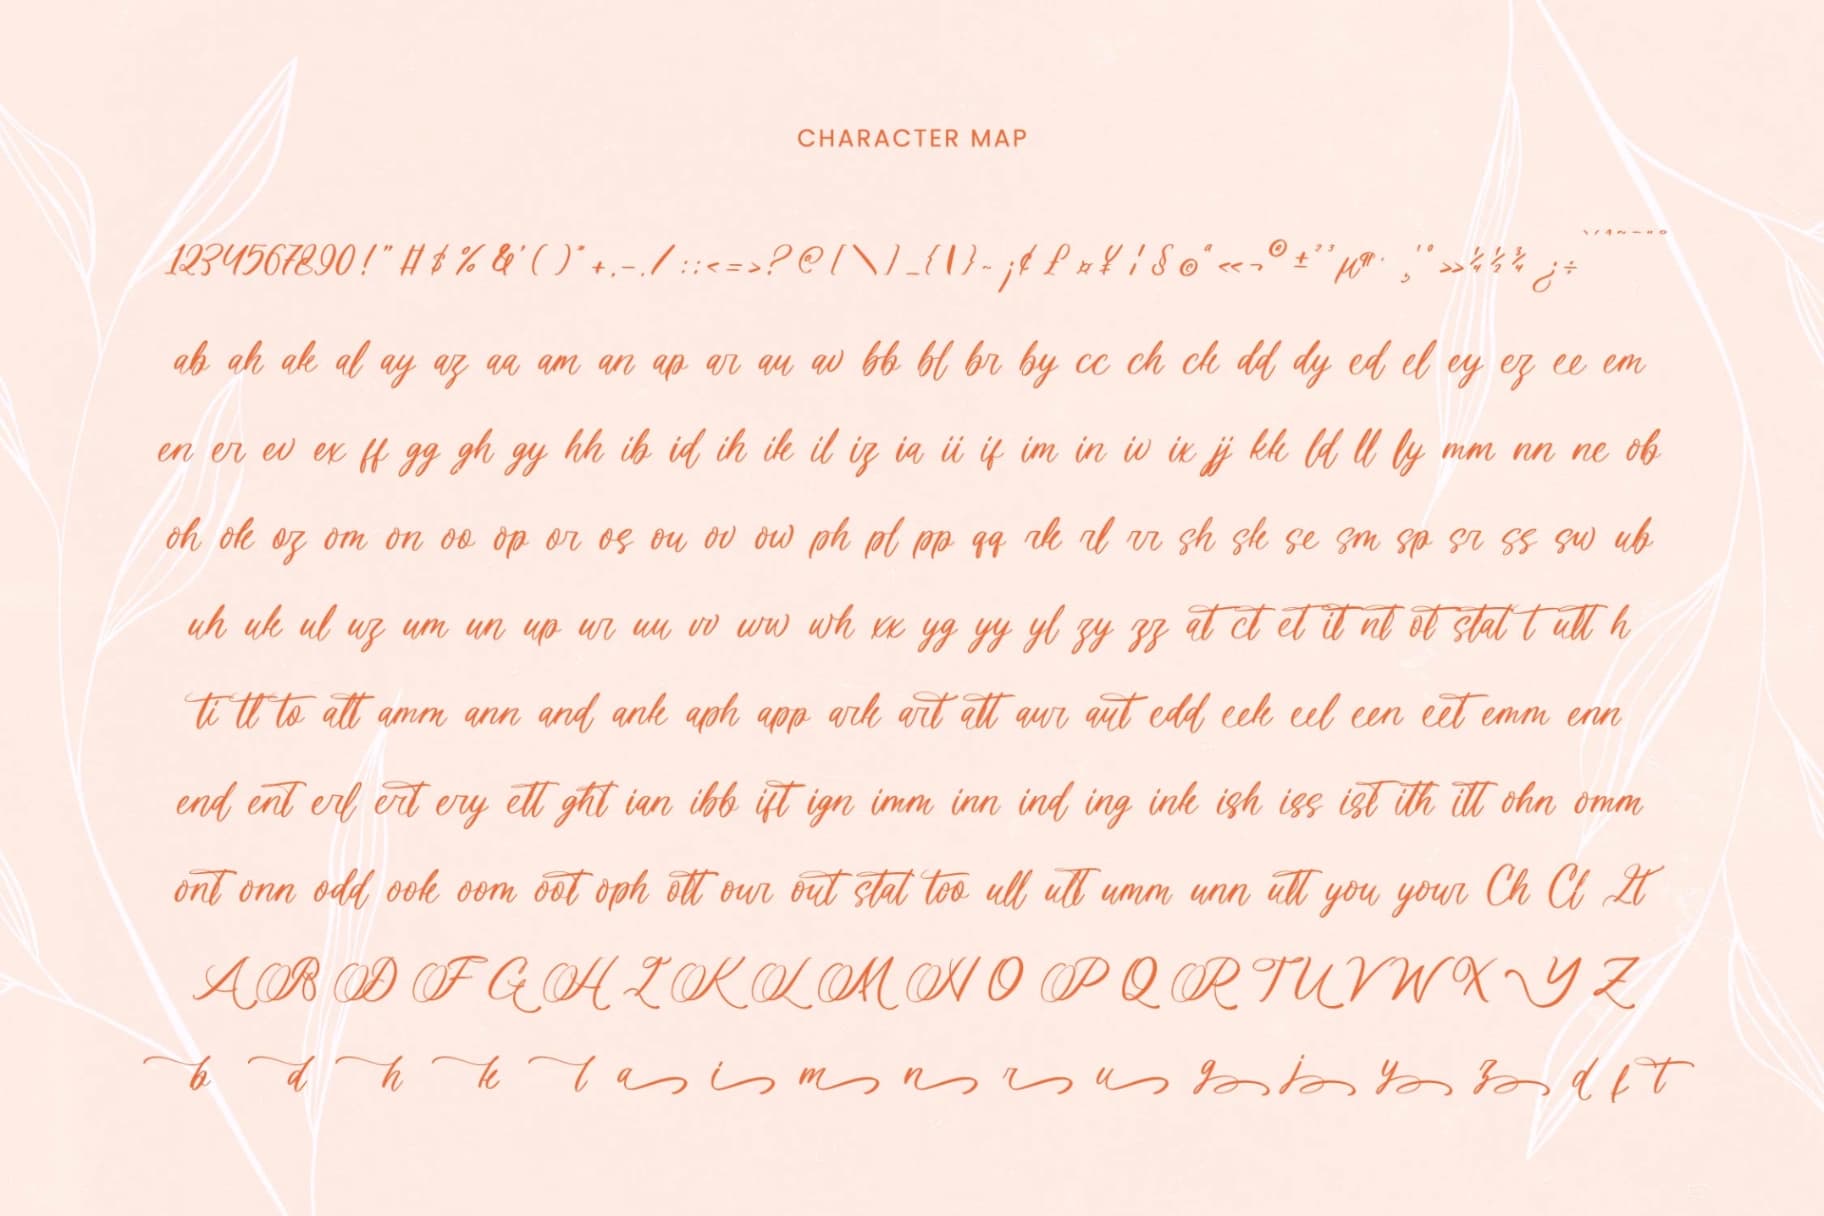 CHARACTER MAP
1234567890!"#$%&'()*+,-./:;<=>?@[\]_{|}~¡¢£¤¥¦§©ª«¬®±²³µ¶·¸¹º»¼½¾¿÷
ab ah ak al ay az aa am an ap ar au av bb bl br by cc ch ck dd dy ed el ey ez ee em
en er ev ex ff gg gh gy hh ib id ih ik il iz ia ii if im in iv ix jj kk ld ll ly mm nn ne ob
oh ok oz om on oo op or os ou ov ow ph pl pp qq rk rl rr sh sk se sm sp sr ss sw ub
uh uk ul uz um un up ur uu vv ww wh xx yg yy yl zy zz at ct et it nt ot stat t utt h
ti tl to att amm ann and ank aph app ark art att aur aut edd eek eel een eet emm enn
end ent erl ert ery ett ght ian ibb ift ign imm inn ind ing ink ish iss ist ith itt ohn omm
ont onn odd ook oom oot oph ott our out stat too ull ult umm unn utt you your Ch Cl It
A B D F G H I K L M N O P Q R T U V W X Y Z
b d h k l a i m n r u g j y z d f t